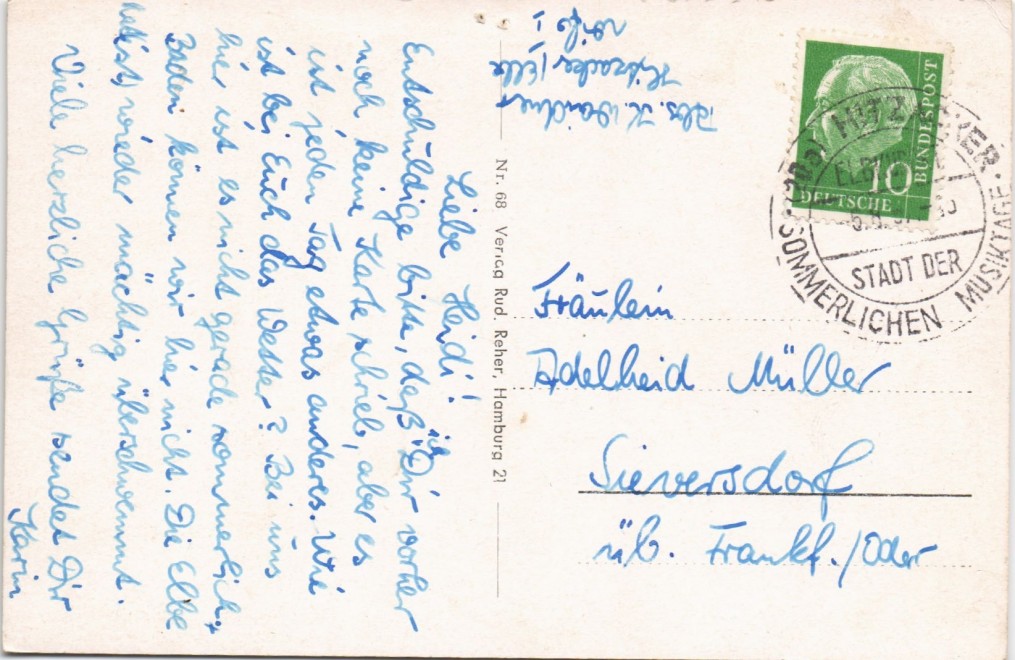 Liebe Heidi!
Entschuldige bitte, daß ich Dir vorher
noch keine Karte schrieb, aber es
ist jeden Tag etwas anderes. Wie
ist bei Euch das Wetter? Bei uns
hier ist es nicht gerade sommerlich.
Baden können wir hier nicht. Die Elbe
hat wieder mächtig überschwemmt.
Viele herzliche Grüße sendet Dir
Karin
Abs. K.
Hitzacker/Elbe
Nr. 68 Verlag Rud. Reher, Hamburg 21
DEUTSCHE
BUNDESPOST
10
HITZACKER
STADT DER
SOMMERLICHEN MUSIKTAGE
Fräulein
Adelheid Müller
Sieversdorf
üb. Frankf./Oder